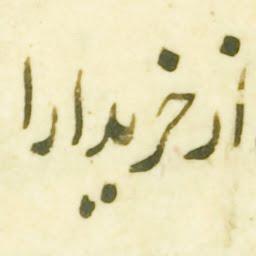 از خریدارا